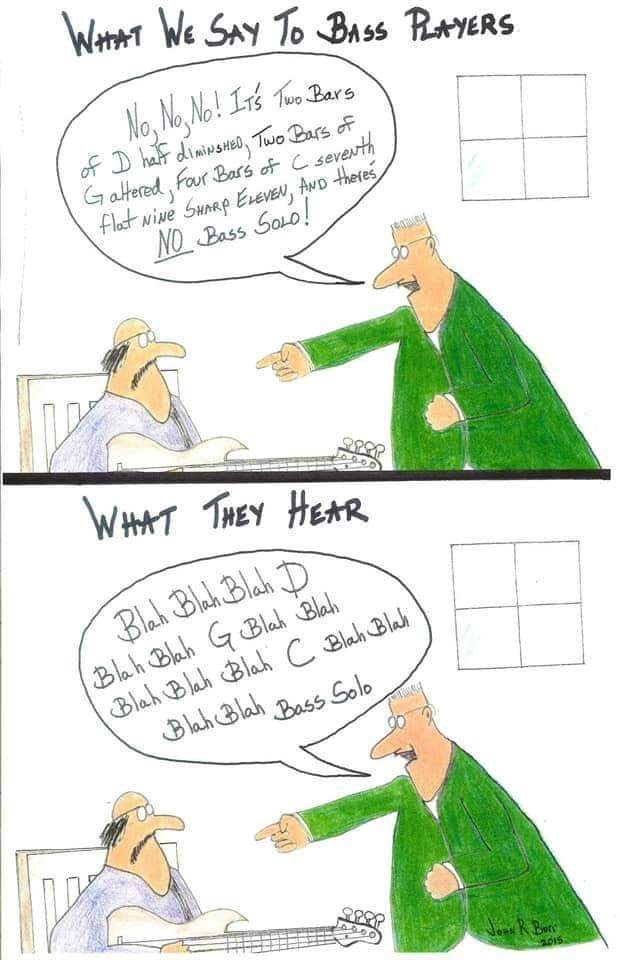 WHAT WE SAY TO BASS PLAYERS
No, No, No! IT'S Two Bars
of D half diminsHED, Two Bars of
G altered, Four Bars of C seventh
flat NINE SHARP ELEVEN, AND theres
NO Bass SOLO!
WHAT THEY HEAR
Blah Blah Blah D
Blah Blah G Blah Blah
Blah Blah Blah C Blah Blah
Blah Blah Bass Solo
JOHN R Burr
2015